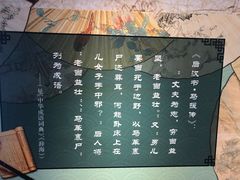 《后汉书·马援传》：
“丈夫为志，穷当益
坚，老当益壮。”又：“男儿
要当死于边野，以马革裹
尸还葬耳，何能卧床上在
儿女子手中邪？”后人将
“老当益壮”、“马革裹尸”
列为成语。
——见《中华成语词典》《辞海》